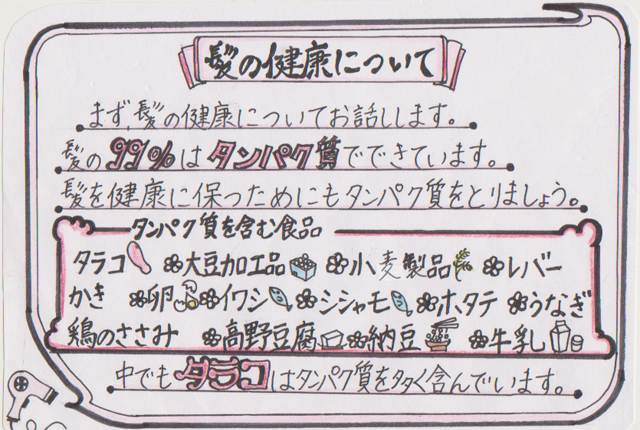 髪の健康について
まず、髪の健康についてお話しします。
髪の99%はタンパク質でできています。
髪を健康に保つためにもタンパク質をとりましょう。
タンパク質を含む食品
タラコ 大豆加工品 小麦製品 レバー
かき 卵 イワシ シシャモ ホタテ うなぎ
鶏のささみ 高野豆腐 納豆 牛乳
中でもタラコはタンパク質を多く含んでいます。